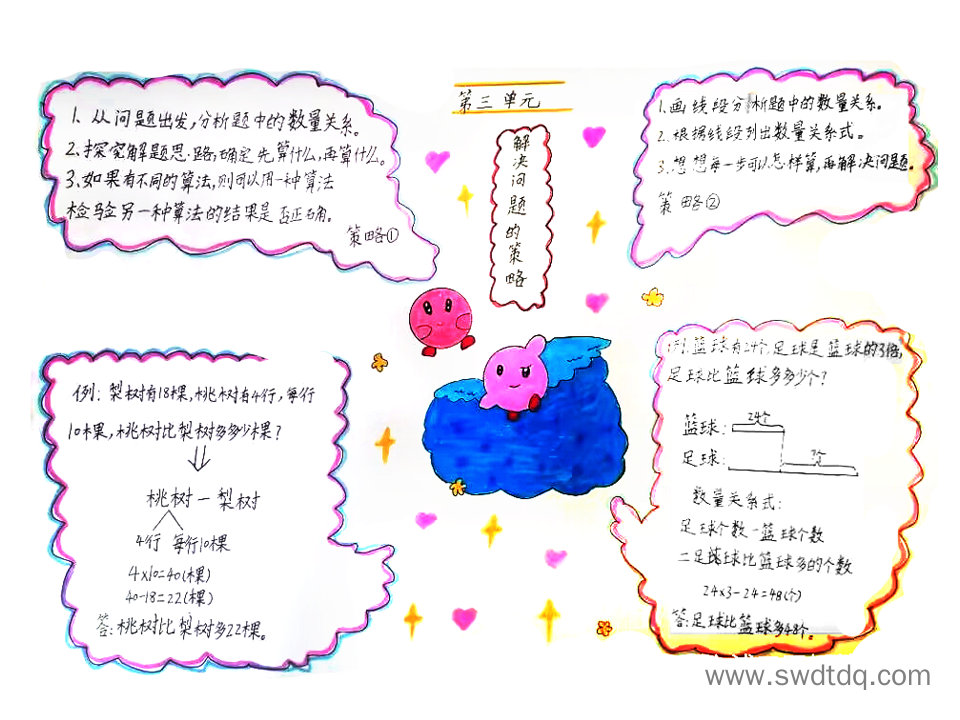 第三单元
解决问题的策略
1、从问题出发,分析题中的数量关系。
2、探究解题思路,确定先算什么,再算什么。
3、如果有不同的算法,则可以用一种算法
检验另一种算法的结果是否正确。
策略①
1.画线段分析题中的数量关系。
2.根据线段列出数量关系式。
3.想想每一步可以怎样算,再解决问题。
策略②
例:梨树有18棵,桃树有4行,每行
10棵,桃树比梨树多多少棵?
桃树-梨树
4行 每行10棵
4×10=40(棵)
40-18=22(棵)
答:桃树比梨树多22棵。
例:篮球有24个,足球是篮球的3倍,
足球比篮球多多少个?
24个
篮球:
?个
足球:
数量关系式:
足球个数-篮球个数
=足球比篮球多的个数
24×3-24=48(个)
答:足球比篮球多48个。
www.swdtdq.com